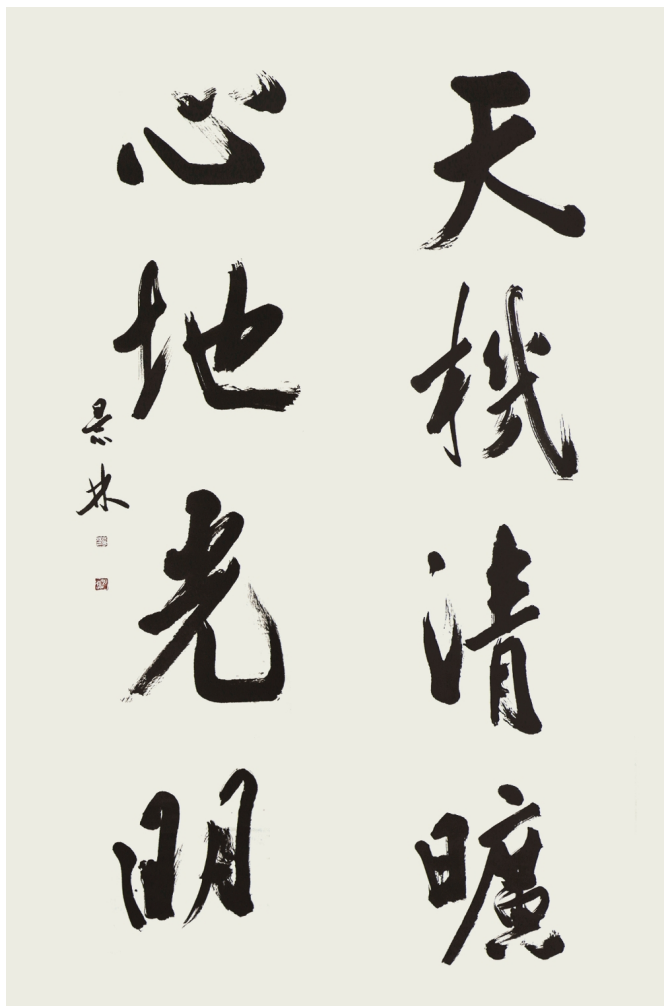 天機清曠
心地光明
景林